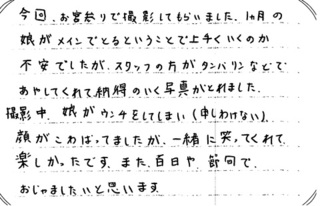 今回、お宮参りで撮影してもらいました。1ヵ月の
娘がメインでとるということで上手くいくのか
不安でしたが、スタッフの方がタンバリンなどで
あやしてくれて納得のいく写真がとれました。
撮影中、娘がウンチをしてしまい(申しわけない)
顔がこわばってましたが、一緒に笑ってくれて
楽しかったです。また、百日や、節句で、
おじゃましたいと思います